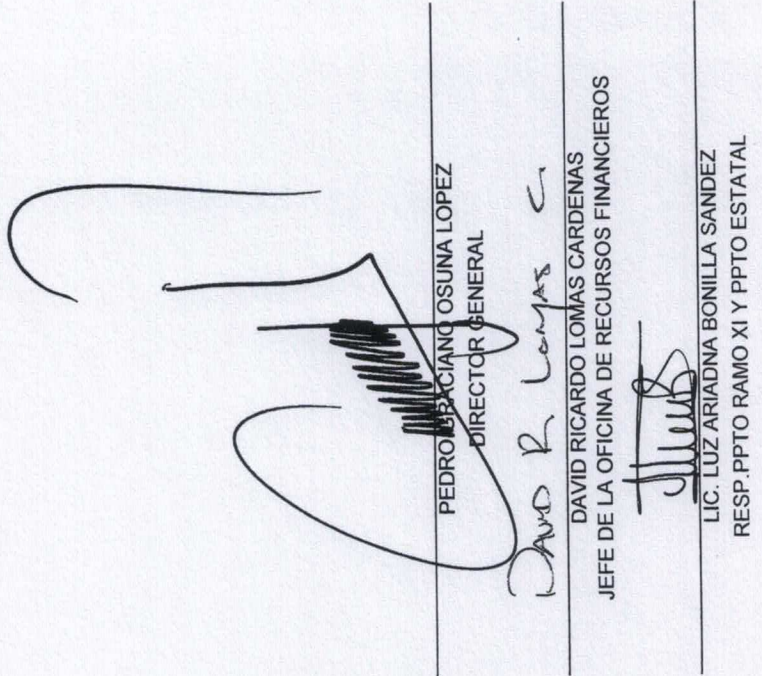 PEDRO GRACIANO OSUNA LOPEZ
DIRECTOR GENERAL
DAVID R. LOMAS C.
DAVID RICARDO LOMAS CARDENAS
JEFE DE LA OFICINA DE RECURSOS FINANCIEROS
LIC. LUZ ARIADNA BONILLA SANDEZ
RESP.PPTO RAMO XI Y PPTO ESTATAL